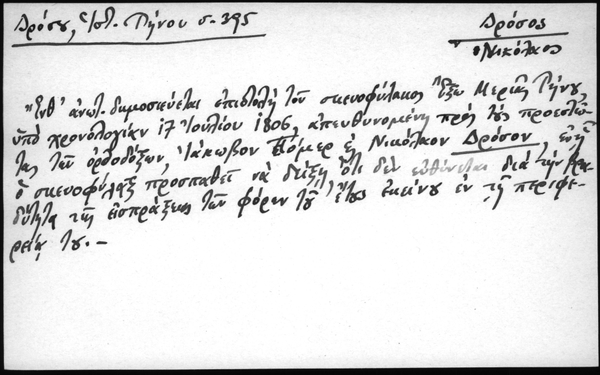 Δρόσου, Ἱστ. Τήνου σ. 395
Δρόσος
Νικόλαος
"Ἔνθ' ἀνωτ. δημοσιεύεται ἐπιστολὴ τοῦ σκευοφύλακος Ἔξω Μεριᾶς Τήνου,
ὑπὸ χρονολογίαν 17 Ἰουλίου 1806, ἀπευθυνομένη πρὸς τοὺς προεστῶ-
τας τῶν ὀρθοδόξων, Ἰάκωβον καὶ Νικόλαον Δρόσον, ἐν ᾗ
ὁ σκευοφύλαξ προσπαθεῖ νὰ δείξῃ ὅτι δὲν εὐθύνεται διὰ τὴν βρα-
δύτητα τῆς εἰσπράξεως τῶν φόρων τοῦ ἔτους ἐκείνου ἐν τῇ περιφε-
ρείᾳ του. –